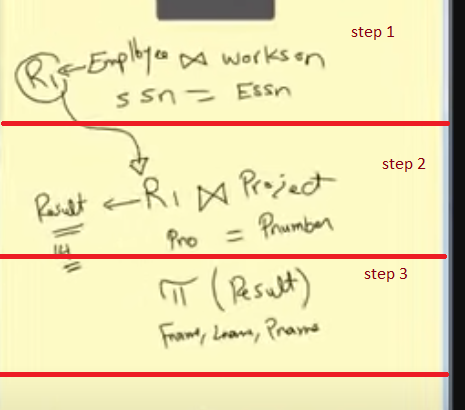 step 1
R1 ← Employee ⋈ works on
ssn = Essn
step 2
Result ← R1 ⋈ Project
Pno = Pnumber
step 3
π (Result)
Fname, Lname, Pname